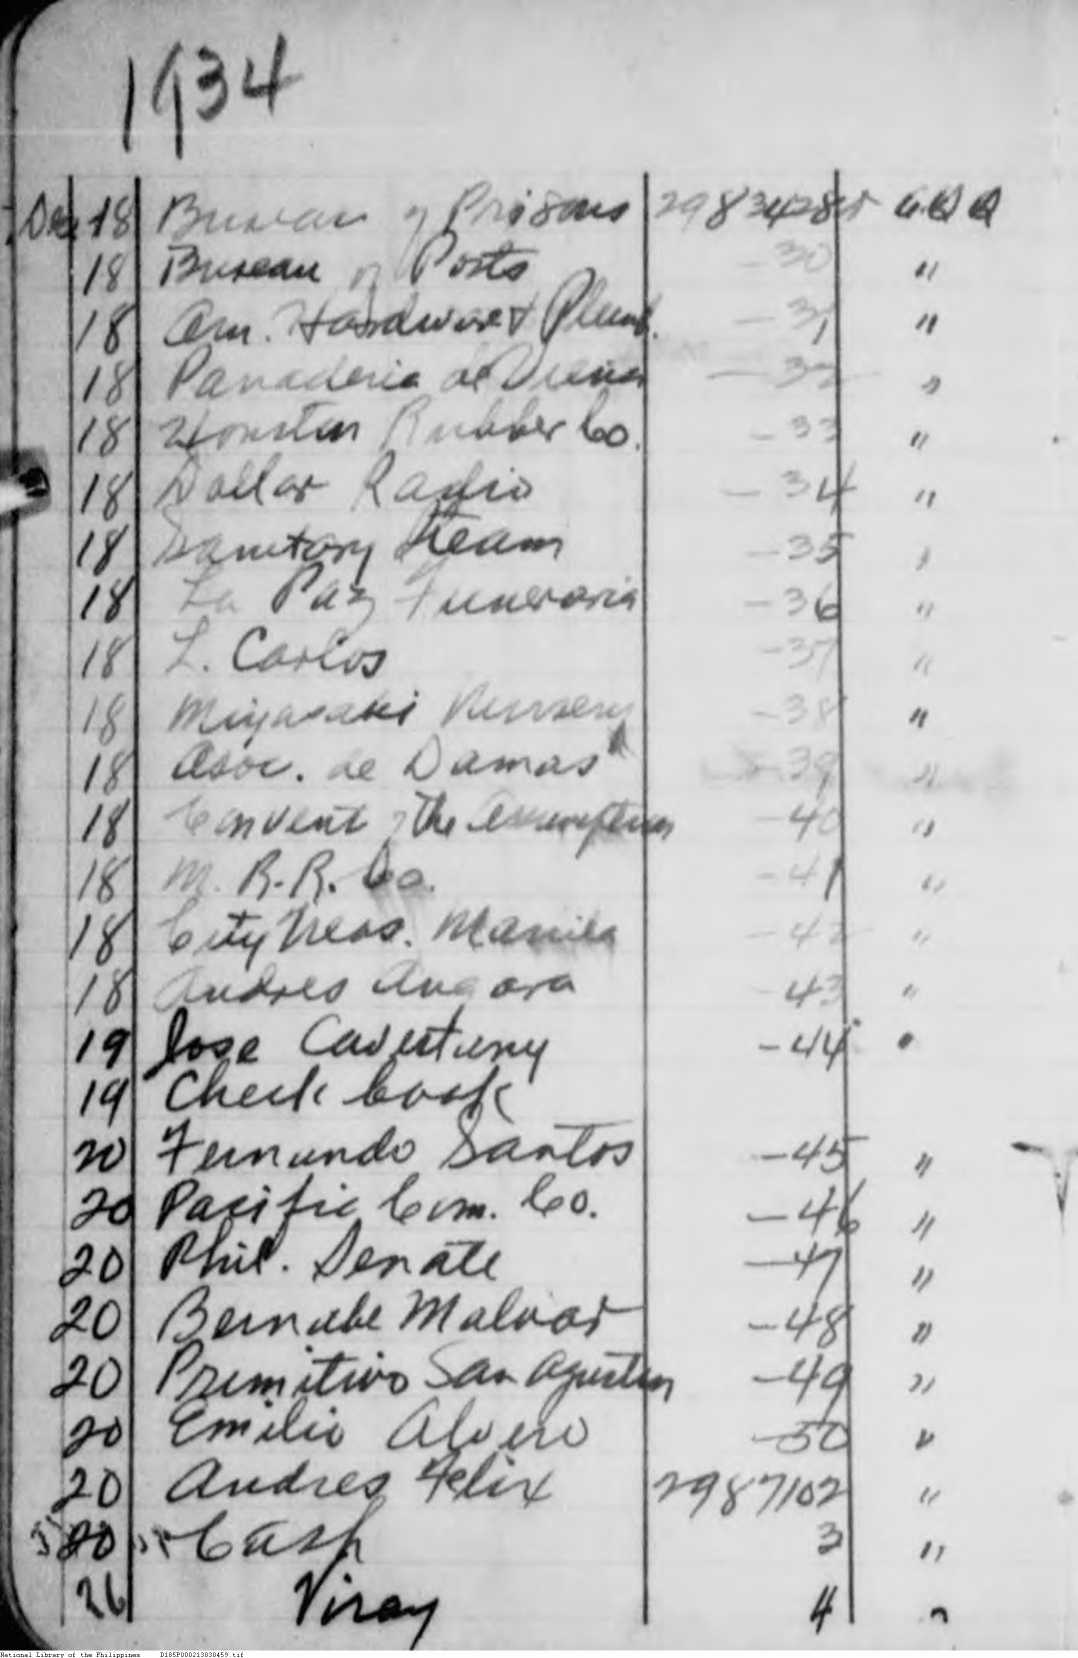 1934
Dec 18 Bureau of Prisons 29834285 G.Q.Q
18 Bureau of Posts -30 "
18 Am. Hardware & Plumb. -31 "
18 Panaderia de Viena -32 "
18 Houston Rubber Co. -33 "
18 Dollar Radio -34 "
18 Sanitary Steam -35 "
18 La Paz Funeraria -36 "
18 L. Carlos -37 "
18 Miyasaki Nursery -38 "
18 Asoc. de Damas -39 "
18 Convent of the Assumption -40 "
18 M. R.R. Co. -41 "
18 City Treas. Manila -42 "
18 Andres Angara 43 "
19 Jose Cavestany -44 "
19 Check book
20 Fernando Santos -45 "
20 Pacific Com. Co. -46 "
20 Phil. Senate -47 "
20 Bernabe Malvar -48 "
20 Primitivo San Agustin -49 "
20 Emilio Alvero -50 "
20 Andres Felix 2987102 "
20 Cash 3 "
26 Viray 4 "
National Library of the Philippines D185P000213838459.tif